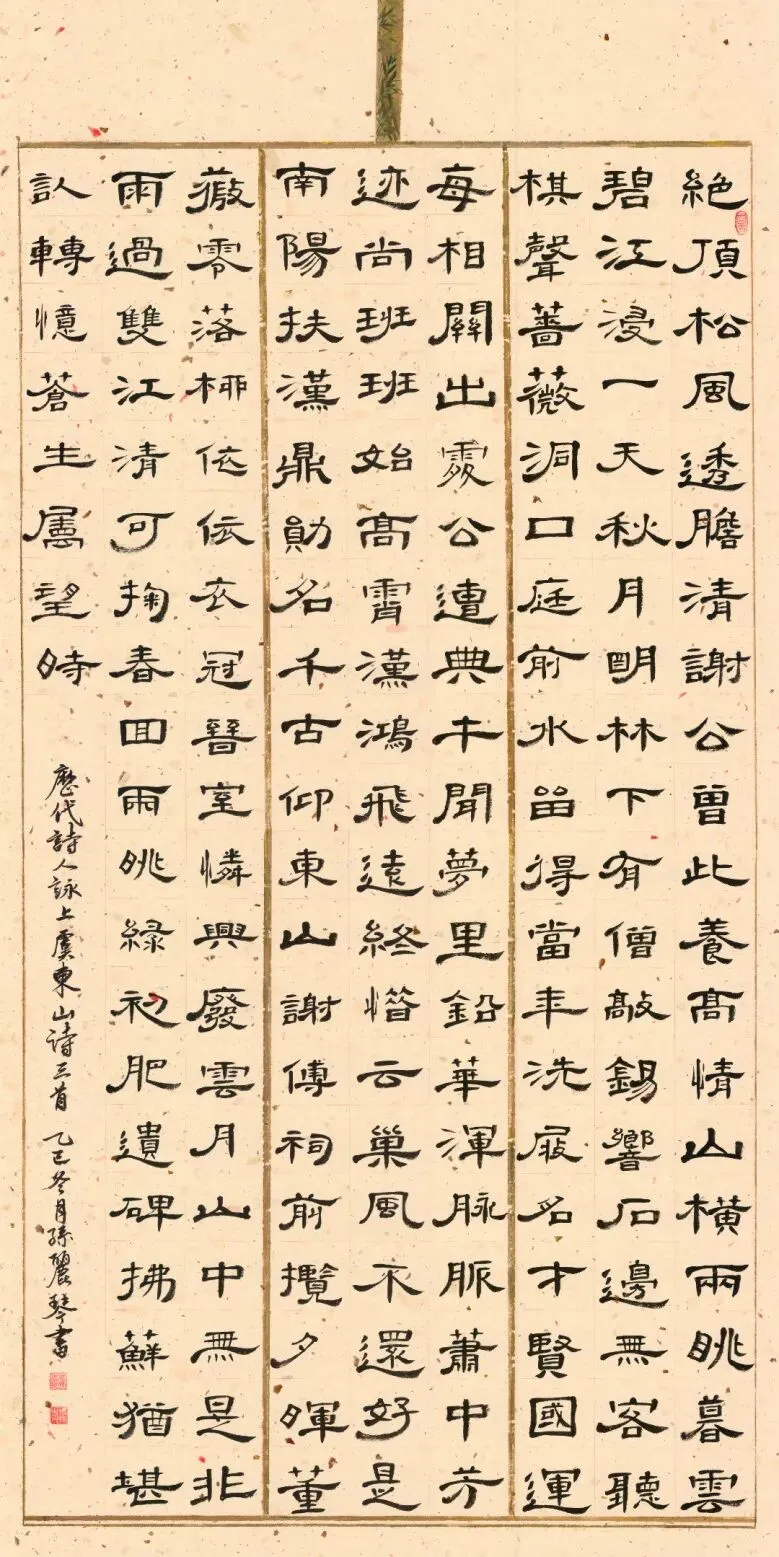 絶頂松風透膽清謝公曾此養髙情山橫兩眺暮雲
碧江浸一天秋月明林下有僧敲錫響石邊無客聽
棋聲薔薇洞口庭前水留得當年洗屐名才賢國運
每相關出處公遭典午聞夢里鉛華渾脉脈蕭中芳
迹尚班班始髙霄漢鴻飛遠終惜云巢風不還好是
南陽扶漢鼎勛名千古仰東山謝傅祠前攬夕暉董
薇零落栁依依衣冠晉室憐興廢雲月山中無是非
雨過雙江清可掬春回兩眺綠初肥遺碑拂蘚猶堪
認轉憶蒼生屬望時
歷代詩人詠上虞東山詩三首 乙巳冬月孫麗琴書